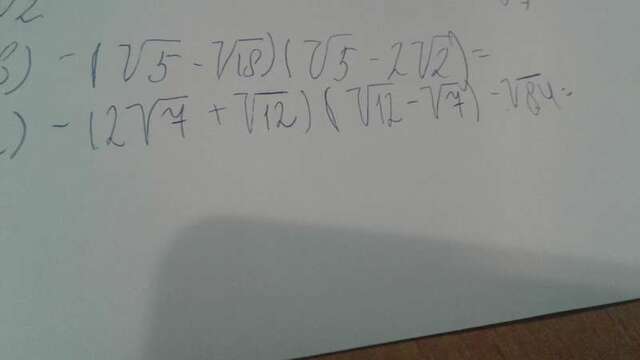 √2
в) -(√5 - √18)(√5 - 2√2) =
-(2√7 + √12)(√12 - √7) - √84 =